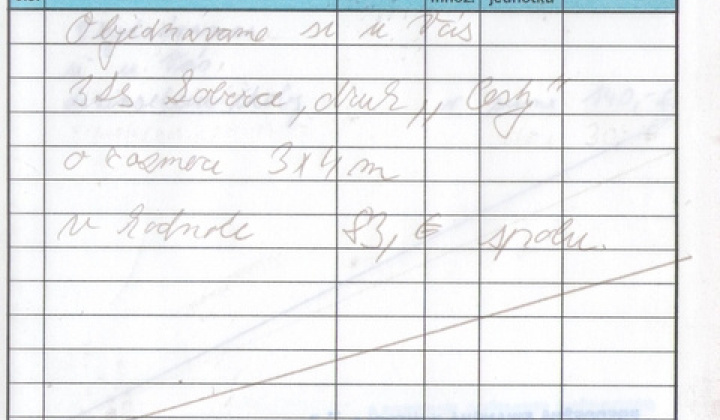 množ. jednotka
Objednávame si u Vás
3 ks koberce, druh „Cesty"
o rozmere 3x4 m
v hodnote 83,€ spolu.